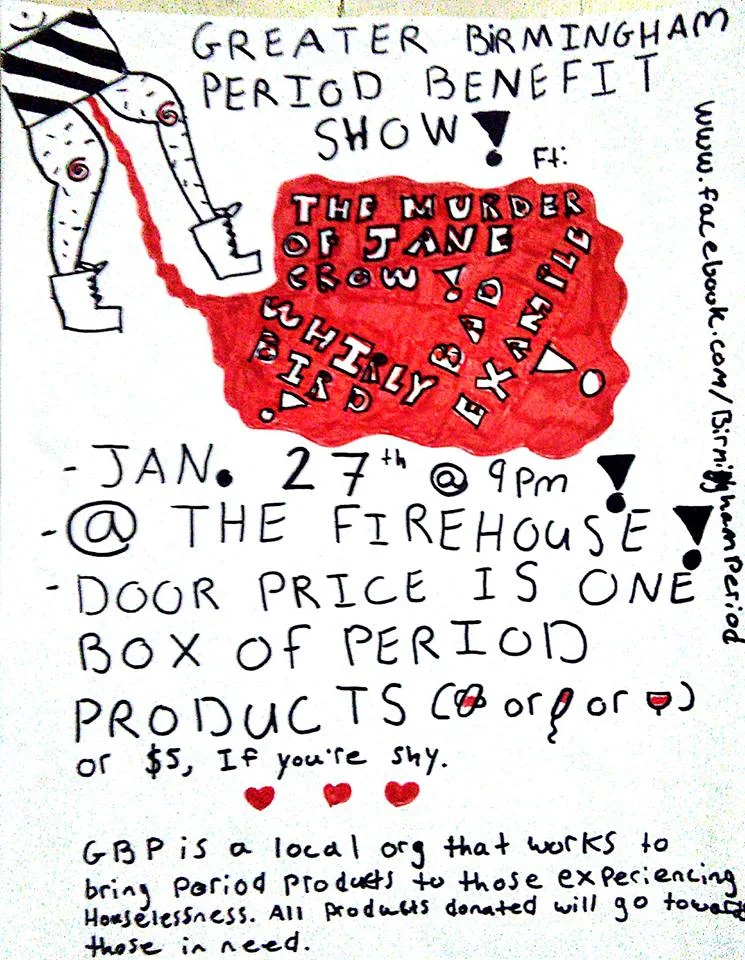 GREATER BIRMINGHAM
PERIOD BENEFIT
SHOW!
Ft:
THE MURDER
OF JANE
CROW!
WHIRLY
BIRD!
BAD
EXAMPLE!
- JAN. 27th @ 9pm !
- @ THE FIREHOUSE!
- DOOR PRICE IS ONE
BOX OF PERIOD
PRODUCTS ( or or )
or $5, If you're shy.
GBP is a local org that works to
bring Period Products to those experiencing
Houselessness. All Products donated will go toward
those in need.
www.facebook.com/BirminghamPeriod